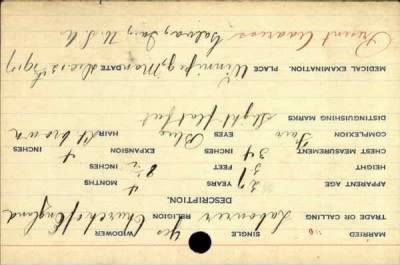 MARRIED no SINGLE yes WIDOWER
TRADE OR CALLING Labourer RELIGION Church of England
DESCRIPTION.
APPARENT AGE YEARS 4 MONTHS
HEIGHT FEET 8½ INCHES
CHEST MEASUREMENT 34 INCHES EXPANSION 4 INCHES
COMPLEXION Fair EYES Blue HAIR Lt brown
DISTINGUISHING MARKS Slight flat feet
MEDICAL EXAMINATION. PLACE Winnipeg, Man DATE 1917
Present Address U.S.A